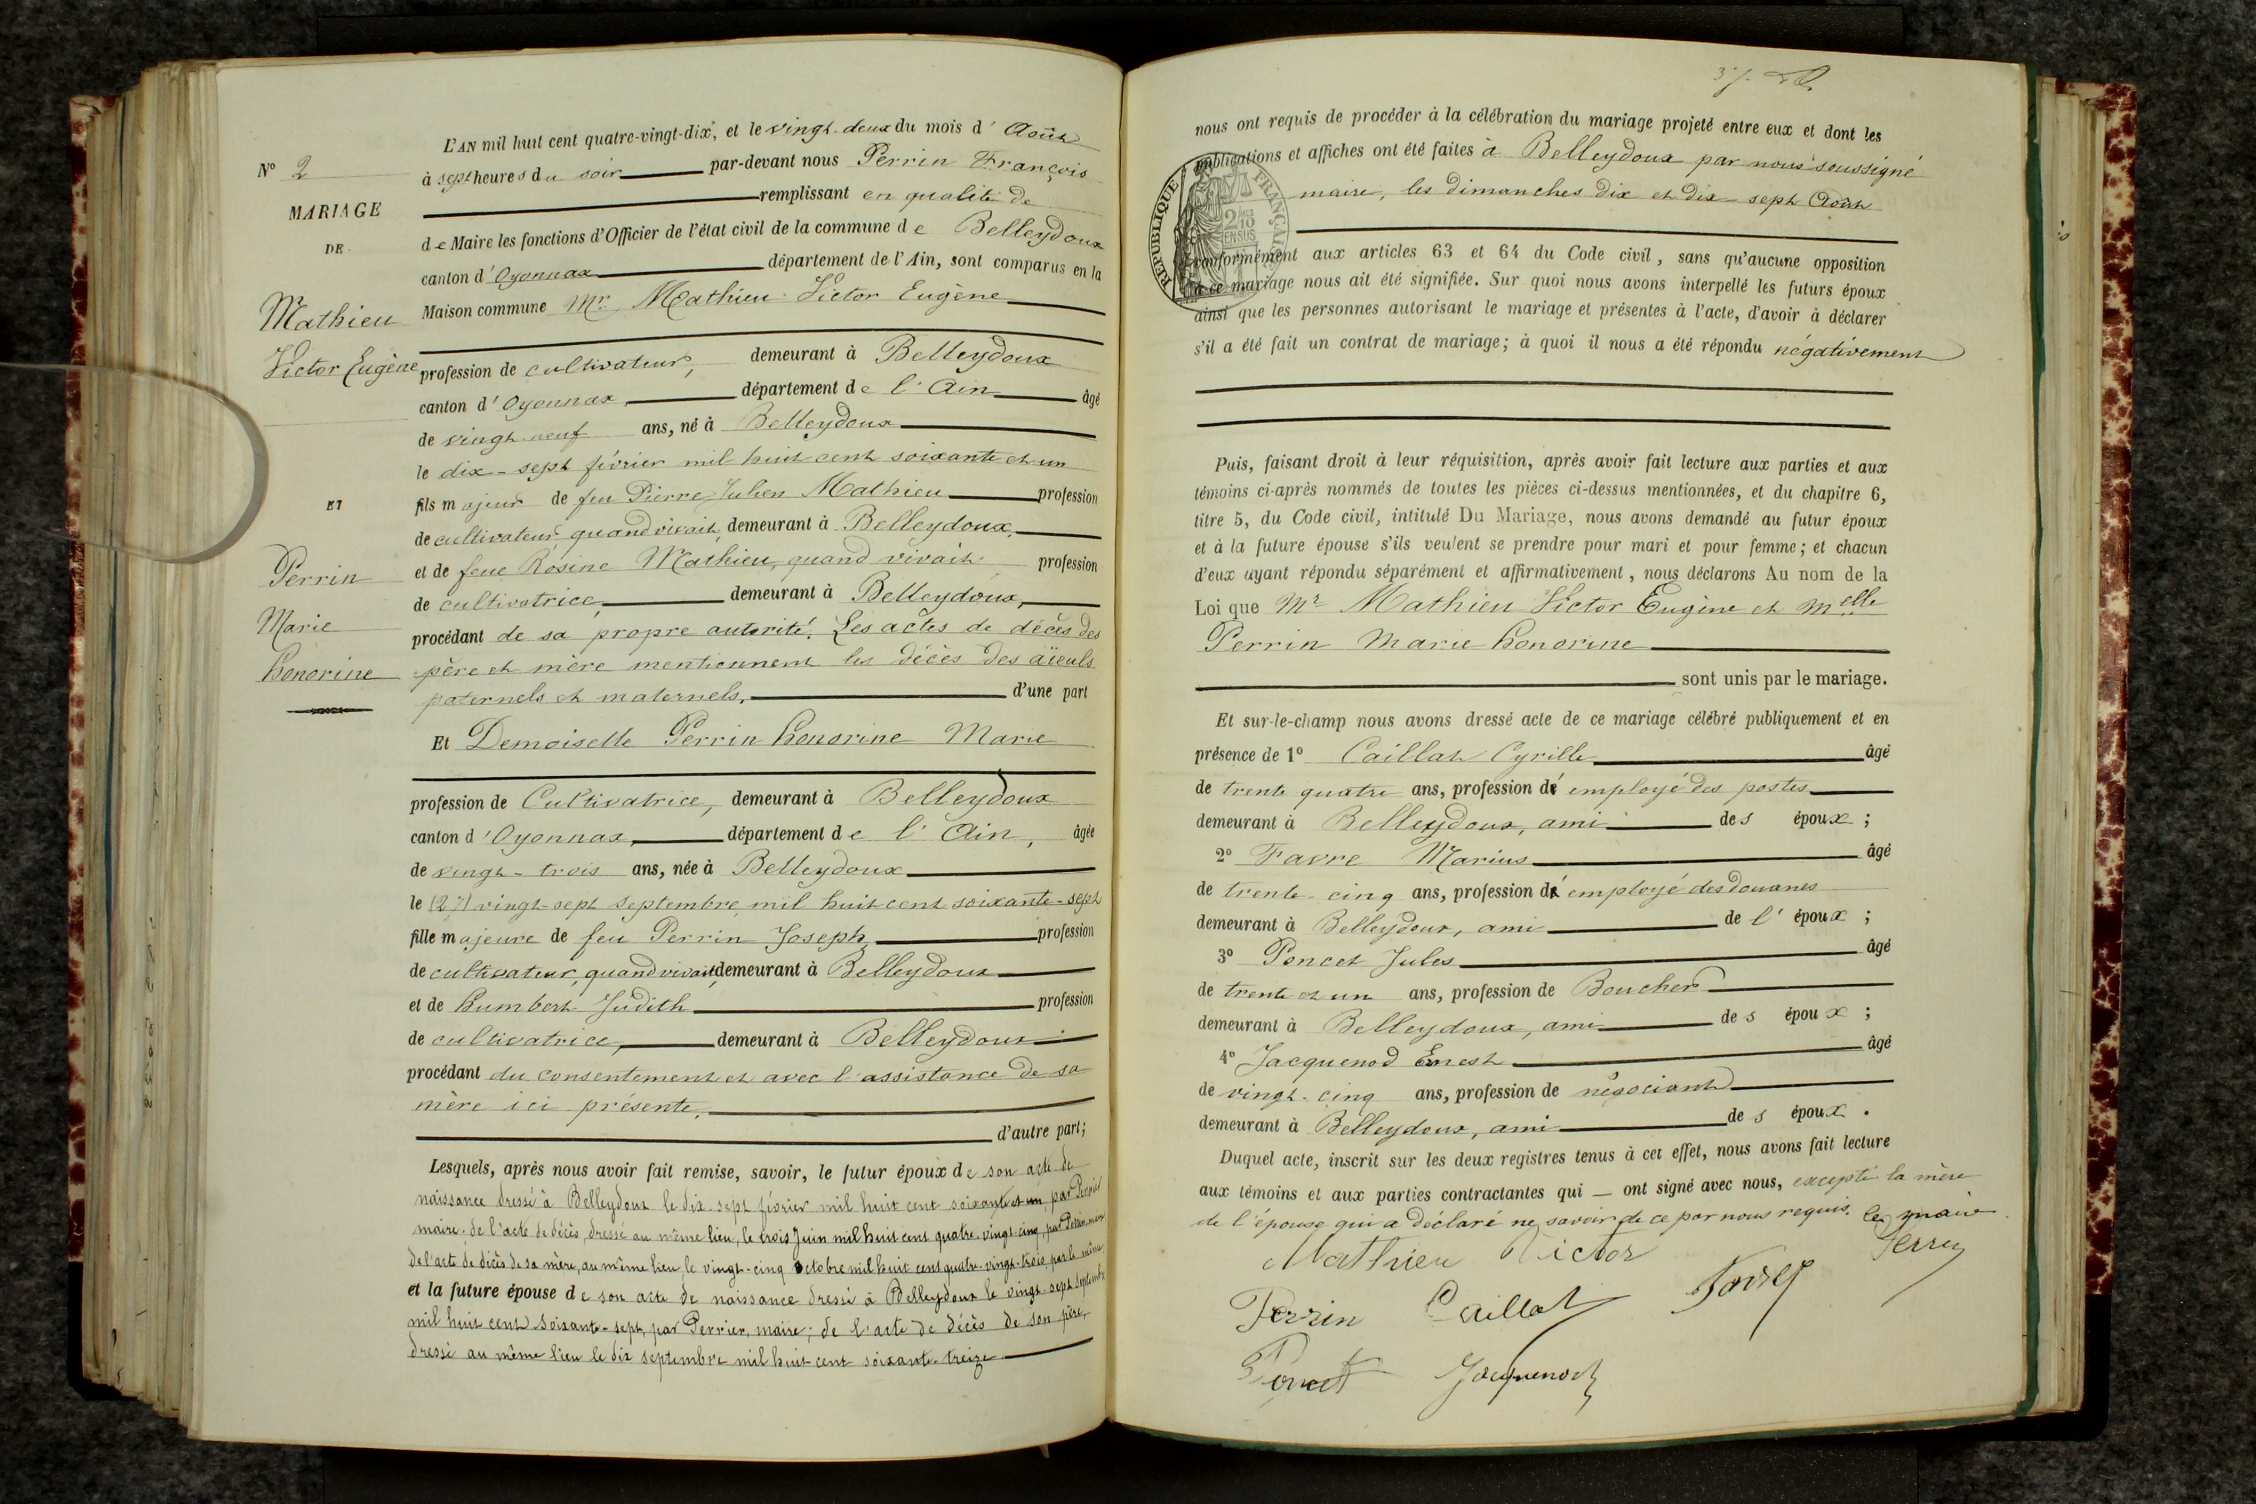 N° 2
MARIAGE
DE
Mathieu
Victor Eugène
ET
Perrin
Marie
honorine
L'AN mil huit cent quatre-vingt-dix, et le vingt-deux du mois d' Août
à sept heures du soir par-devant nous Perrin François
remplissant en qualité de
de Maire les fonctions d'Officier de l'état civil de la commune de Belleydoux
canton d'Oyonnax département de l'Ain, sont comparus en la
Maison commune Mr. Mathieu Victor Eugène
profession de cultivateur, demeurant à Belleydoux
canton d'Oyonnax, département de l'Ain âgé
de vingt-neuf ans, né à Belleydoux
le dix-sept février mil huit cent soixante et un
fils majeur de feu Pierre Julien Mathieu profession
de cultivateur quand vivait, demeurant à Belleydoux,
et de feue Rosine Mathieu, quand vivait profession
de cultivatrice, demeurant à Belleydoux,
procédant de sa propre autorité. Les actes de décès des
père et mère mentionnent les décès des aïeuls
paternels et maternels, d'une part
Et Demoiselle Perrin honorine Marie
profession de Cultivatrice, demeurant à Belleydoux
canton d'Oyonnax, département de l'Ain, âgée
de vingt-trois ans, née à Belleydoux
le (27) vingt-sept septembre mil huit cent soixante-sept
fille majeure de feu Perrin Joseph, profession
de cultivateur, quand vivait, demeurant à Belleydoux
et de humbert Judith profession
de cultivatrice, demeurant à Belleydoux
procédant du consentement et avec l'assistance de sa
mère ici présente,
d'autre part;
Lesquels, après nous avoir fait remise, savoir, le futur époux de son acte de
naissance dressé à Belleydoux le dix-sept février mil huit cent soixante et un, par Perrier
maire; de l'acte de décès, dressé au même lieu, le trois Juin mil huit cent quatre-vingt-cinq, par Perrin, maire
de l'acte de décès de sa mère, au même lieu, le vingt-cinq octobre mil huit cent quatre-vingt-trois, par le même
et la future épouse de son acte de naissance dressé à Belleydoux le vingt-sept septembre
mil huit cent soixante-sept, par Perrier, maire; de l'acte de décès de son père,
dressé au même lieu le dix septembre mil huit cent soixante-treize
nous ont requis de procéder à la célébration du mariage projeté entre eux et dont les
publications et affiches ont été faites à Belleydoux par nous soussigné
maire, les dimanches dix et dix-sept Août
RÉPUBLIQUE FRANÇAISE
conformément aux articles 63 et 64 du Code civil, sans qu'aucune opposition
à ce mariage nous ait été signifiée. Sur quoi nous avons interpellé les futurs époux
ainsi que les personnes autorisant le mariage et présentes à l'acte, d'avoir à déclarer
s'il a été fait un contrat de mariage; à quoi il nous a été répondu négativement
Puis, faisant droit à leur réquisition, après avoir fait lecture aux parties et aux
témoins ci-après nommés de toutes les pièces ci-dessus mentionnées, et du chapitre 6,
titre 5, du Code civil, intitulé Du Mariage, nous avons demandé au futur époux
et à la future épouse s'ils veulent se prendre pour mari et pour femme; et chacun
d'eux ayant répondu séparément et affirmativement, nous déclarons Au nom de la
Loi que Mr Mathieu Victor Eugène et Melle
Perrin Marie honorine
sont unis par le mariage.
Et sur-le-champ nous avons dressé acte de ce mariage célébré publiquement et en
présence de 1° Caillat Cyrille âgé
de trente quatre ans, profession d'employé des postes
demeurant à Belleydoux, ami des époux;
2° Favre Marius âgé
de trente-cinq ans, profession d'employé des douanes
demeurant à Belleydoux, ami de l'époux;
3° Poncet Jules âgé
de trente et un ans, profession de Boucher
demeurant à Belleydoux, ami des époux;
4° Jacquenod Ernest âgé
de vingt-cinq ans, profession de négociant
demeurant à Belleydoux, ami des époux.
Duquel acte, inscrit sur les deux registres tenus à cet effet, nous avons fait lecture
aux témoins et aux parties contractantes qui — ont signé avec nous, excepté la mère
de l'épouse qui a déclaré ne savoir de ce par nous requis. le maire
Mathieu Victor Perrin
Perrin Caillat Favre
Poncet Jacquenod